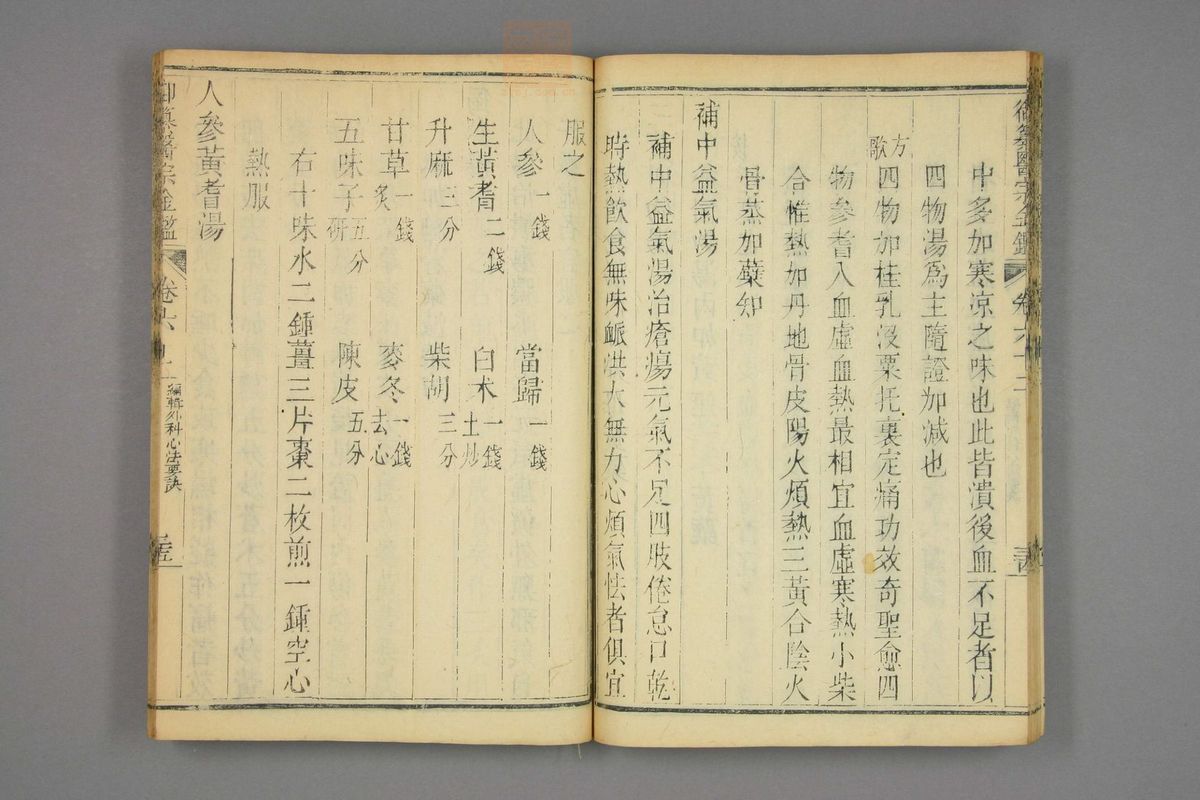 御纂醫宗金鑑 卷六十二
中多加寒凉之味也此皆潰後血不足者以
四物湯爲主隨證加减也
方歌
四物加桂乳没粟托裏定痛功效奇聖愈四
物參耆入血虛血熱最相宜血虛寒熱小柴
合惟熱加丹地骨皮陽火煩熱三黃合陰火
骨蒸加蘗知
補中益氣湯
補中益氣湯治瘡瘍元氣不足四肢倦怠口乾
時熱飲食無味脈洪大無力心煩氣怯者俱宜
服之
人參一錢 當歸一錢
生黃耆二錢 白术一錢土炒
升麻三分 柴胡三分
甘草一錢炙 麥冬一錢去心
五味子五分研 陳皮五分
右十味水二鍾薑三片棗二枚煎一鍾空心
熱服
人參黃耆湯
御纂醫宗金鑑 卷六
編輯外科心法要訣